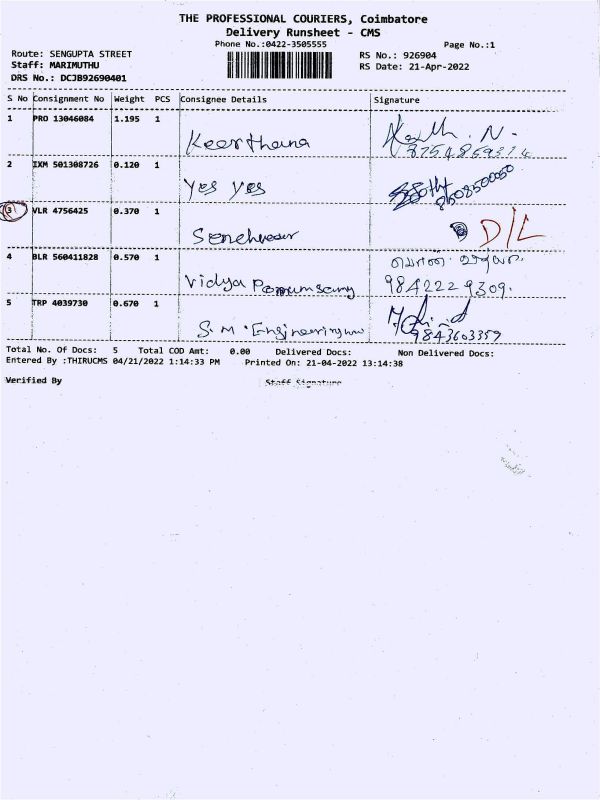 THE PROFESSIONAL COURIERS, Coimbatore
Delivery Runsheet - CMS
Phone No.:0422-3505555 Page No.:1
Route: SENGUPTA STREET RS No.: 926904
Staff: MARIMUTHU RS Date: 21-Apr-2022
DRS No.: DCJB92690401
S No Consignment No Weight PCS Consignee Details Signature
1 PRO 13046084 1.195 1
Keerthana N.
2 IXM 501308726 0.120 1
Yes Yes 9508500050
3 VLR 4756425 0.370 1
D/L
4 BLR 560411828 0.570 1
Vidya 9842229309.
5 TRP 4039730 0.670 1
S.M. Engineering 9843603359
Total No. Of Docs: 5 Total COD Amt: 0.00 Delivered Docs: Non Delivered Docs:
Entered By :THIRUCMS 04/21/2022 1:14:33 PM Printed On: 21-04-2022 13:14:38
Verified By Staff Signature